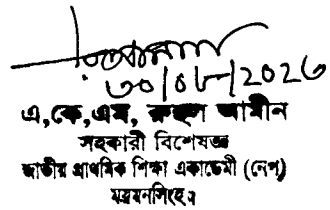 ৩০/০৮/2026
এ,কে,এম, রুহুল আমীন
সহকারী বিশেষজ্ঞ
জাতীয় প্রাথমিক শিক্ষা একাডেমী (নেপ)
ময়মনসিংহ।